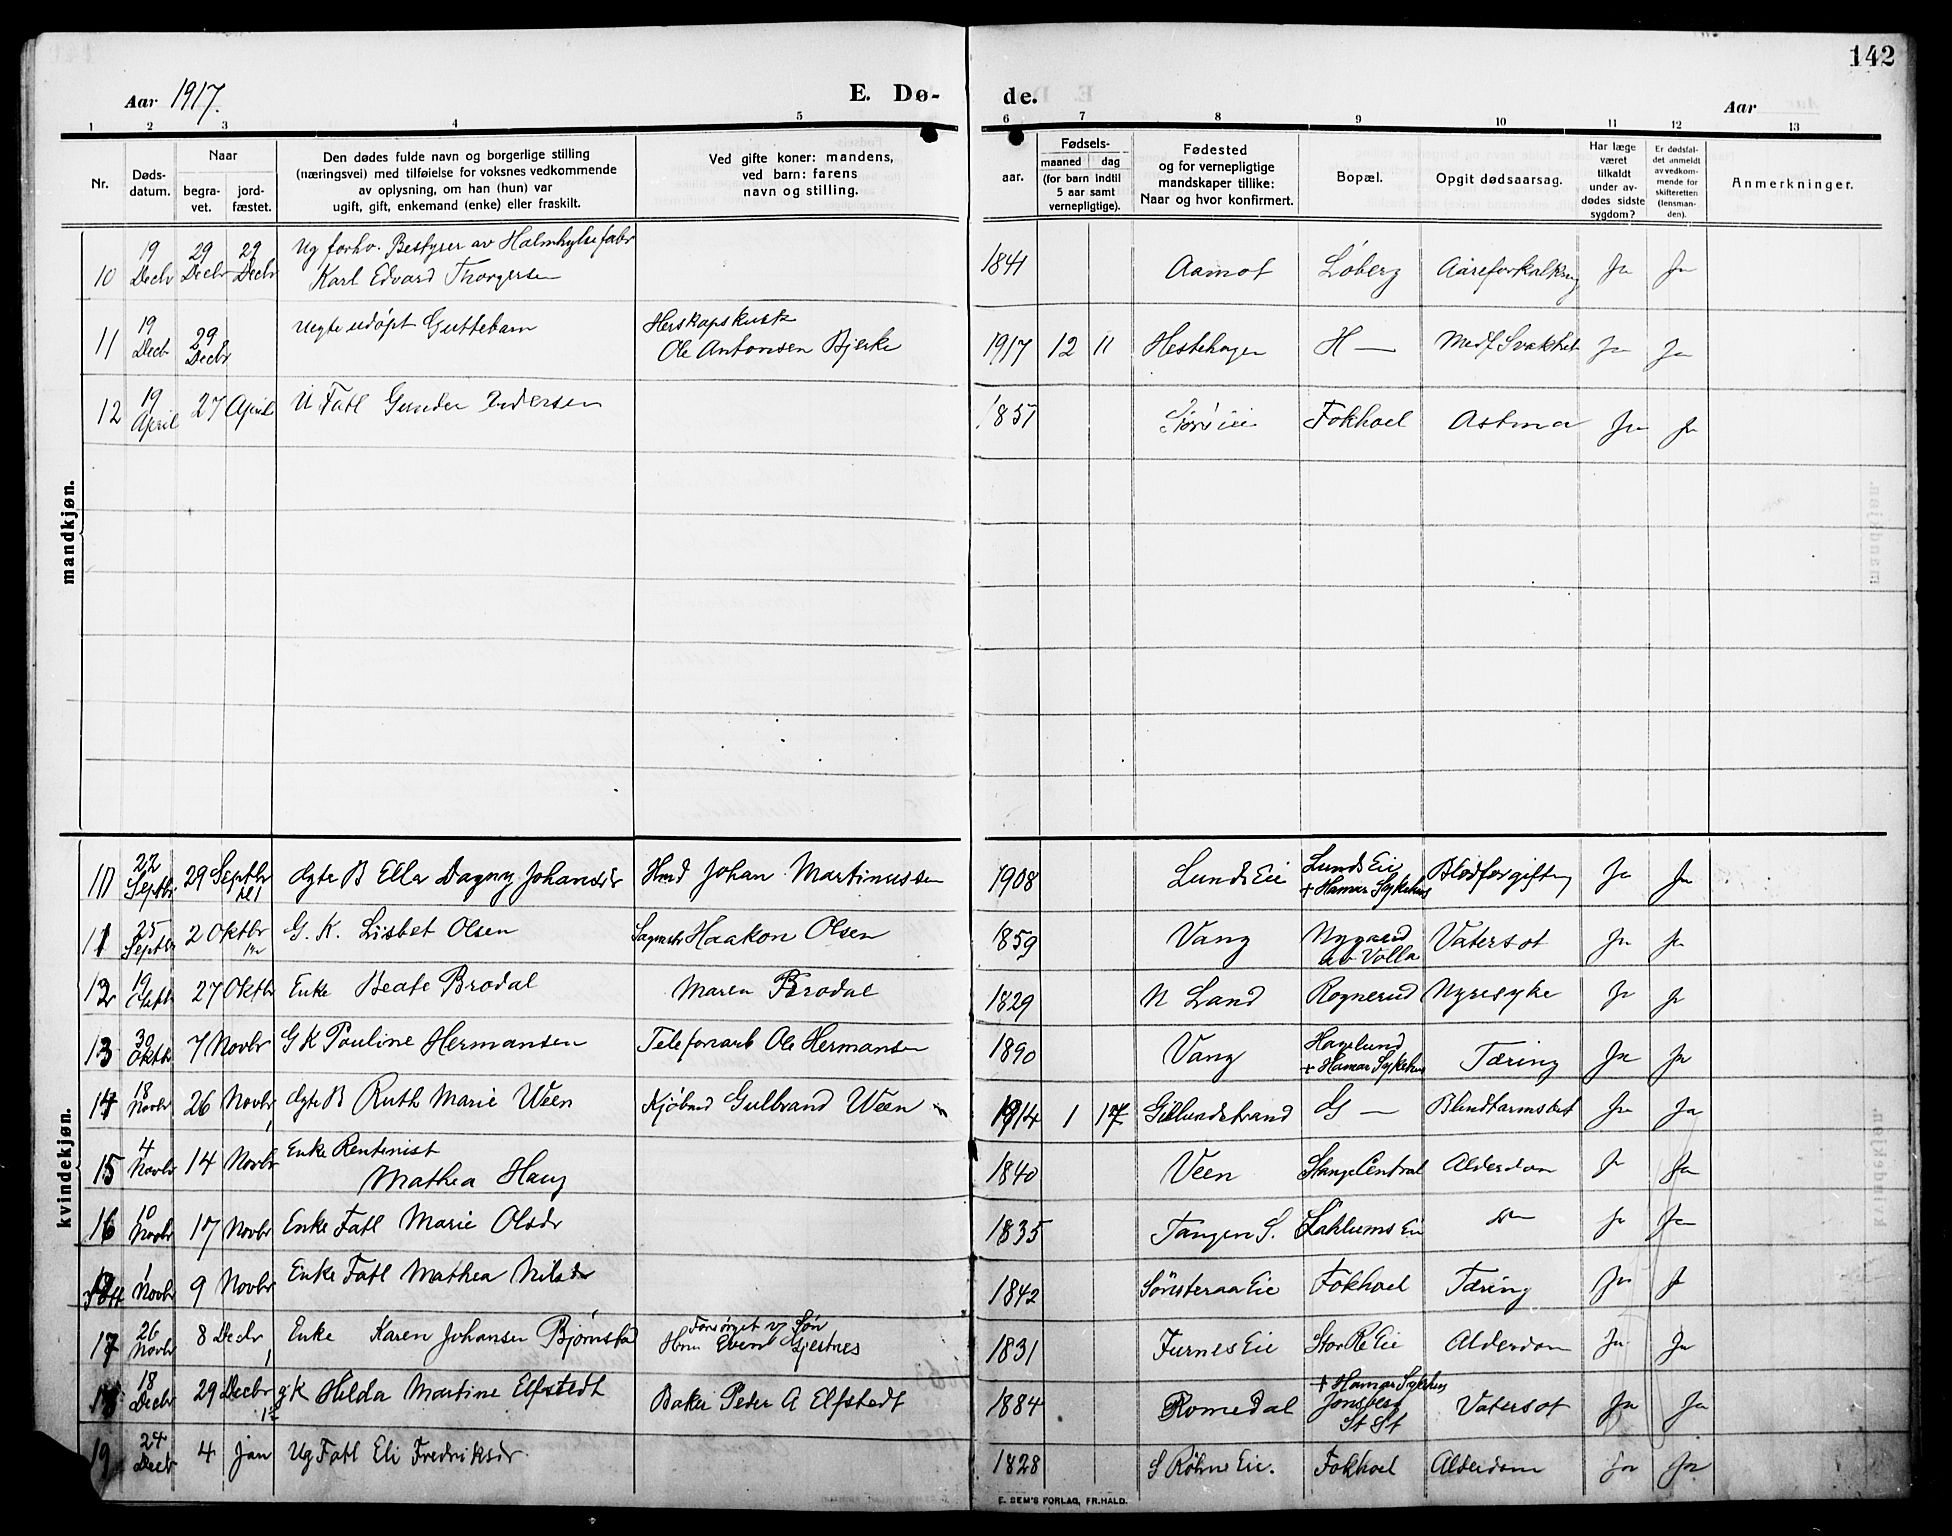 142
Aar 1917. E. Dø- de. Aar
1 2 3 4 5 6 7 8 9 10 11 12 13
Nr.
Døds-
datum.
Naar
begra-
vet.
jord-
fæstet.
Den dødes fulde navn og borgerlige stilling
(næringsvei) med tilføielse for voksnes vedkommende
av oplysning, om han (hun) var
ugift, gift, enkemand (enke) eller fraskilt.
Ved gifte koner: mandens,
ved barn: farens
navn og stilling.
Fødsels-
aar.
maaned dag
(for barn indtil
5 aar samt
vernepligtige).
Fødested
og for vernepligtige
mandskaper tillike:
Naar og hvor konfirmert.
Bopæl.
Opgit dødsaarsag.
Har læge
været
tilkaldt
under av-
dødes sidste
sygdom?
Er dødsfal-
det anmeldt
av vedkom-
mende for
skifteretten
(lensman-
den).
Anmerkninger.
mandkjøn.
10 19 Decbr 29 Decbr 29 Decbr Ug forhv. Bestyrer av Halmhylsefabr
Karl Edvard Thorgersen 1841 Aamot Løberg Aareforkalkning Ja Ja
11 19 Decbr 29 Decbr Uegte udøpt Guttebarn Herskapskusk
Ole Antonsen Bjerke 1917 12 11 Hestehagen H — Medf. Svakhet Ja Ja
12 19 April 27 April U Fatl Gunder Andersen 1851 Fokhoel Astma Ja Ja
kvindekjøn.
10 22 Septbr 29 Septbr Egte B Ella Dagny Johansdr Hmd Johan Martinussen 1908 Lunds Eie Lunds Eie
+ Hamar Sykehus Blodforgiftn Ja Ja
11 25 Septbr 2 Oktbr G. K. Lisbet Olsen Sagmstr Haakon Olsen 1859 Vang Nygaard
av Volla Vatersot Ja Ja
12 19 Oktbr 27 Oktbr Enke Beate Brodal Maren Brodal 1829 N Land Rognerud Nyresyke Ja Ja
13 30 Oktbr 7 Novbr G K Pauline Hermansen Telefonarb Ole Hermansen 1890 Vang Hagelund
+ Hamar Sykehus Tæring Ja Ja
14 18 Novbr 26 Novbr Egte B Ruth Marie Ween Kjøbmd Gulbrand Ween 1914 1 17 Gillundstrand G — Blindtarmsbet Ja Ja
15 4 Novbr 14 Novbr Enke Rentenist
Mathea Haug 1840 Veen Stange Central Alderdom Ja Ja
16 10 Novbr 17 Novbr Enke Fatl Marie Olsdr 1835 Tangen S. Saklums Eie Do Ja Ja
1 Novbr 9 Novbr Enke Fatl Mathea Nilsdr 1842 Sønsteraa Eie Fokhoel Tæring Ja Ja
17 26 Novbr 8 Decbr Enke Karen Johansen Bjørnstad Forsørget v Søn
Hmn Even Gjestnes 1831 Furnes Eie Stor Re Eie Alderdom Ja Ja
18 18 Decbr 29 Decbr g K Hilda Martine Elfstedt Baker Peder A Elfstedt 1884 Romedal + Hamar Sykehus
Jonsberg
St St Vatersot Ja Ja
19 24 Decbr 4 Jan Ug Fatl Eli Fredriksdr. 1828 S Røhne Eie. Fokhoel Alderdom Ja Ja
E. SEM'S FORLAG, FR.HALD.